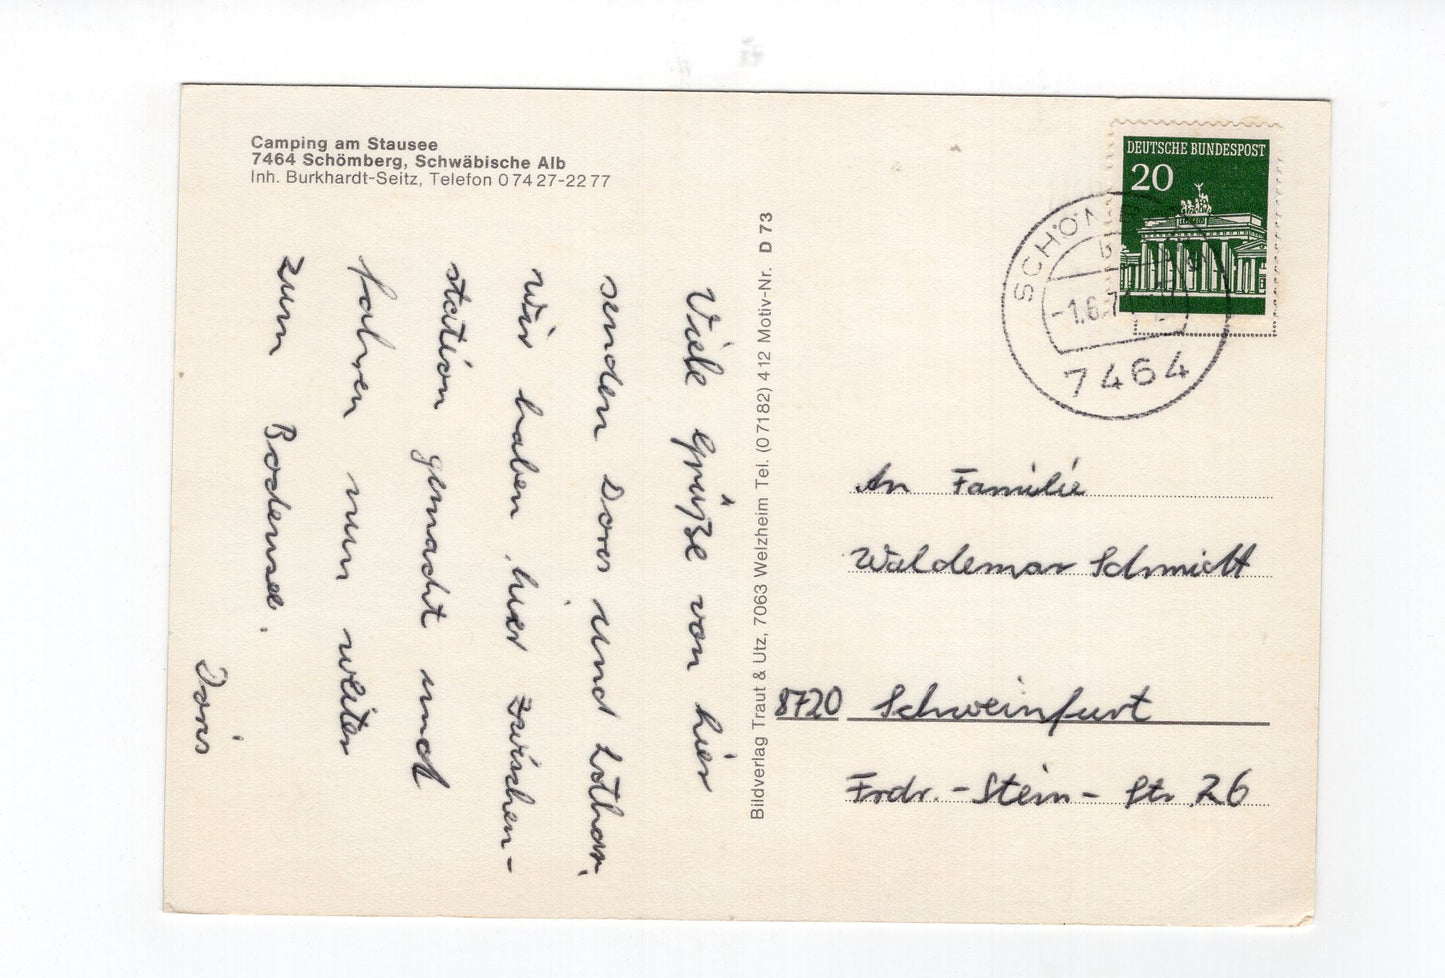 Camping am Stausee
7464 Schömberg, Schwäbische Alb
Inh. Burkhardt-Seitz, Telefon 0 74 27-22 77
Viele Grüße von hier
senden Doris und Lothar.
Wir haben hier Zwischen-
station gemacht und
fahren nun weiter
zum Bodensee.
Doris
Bildverlag Traut & Utz, 7063 Welzheim Tel. (0 71 82) 4 12 Motiv-Nr. D 73
DEUTSCHE BUNDESPOST
20
SCHÖM
b
-1.6.7
7464
An Familie
Waldemar Schmidt
8720 Schweinfurt
Frdr.-Stein-Str. 26